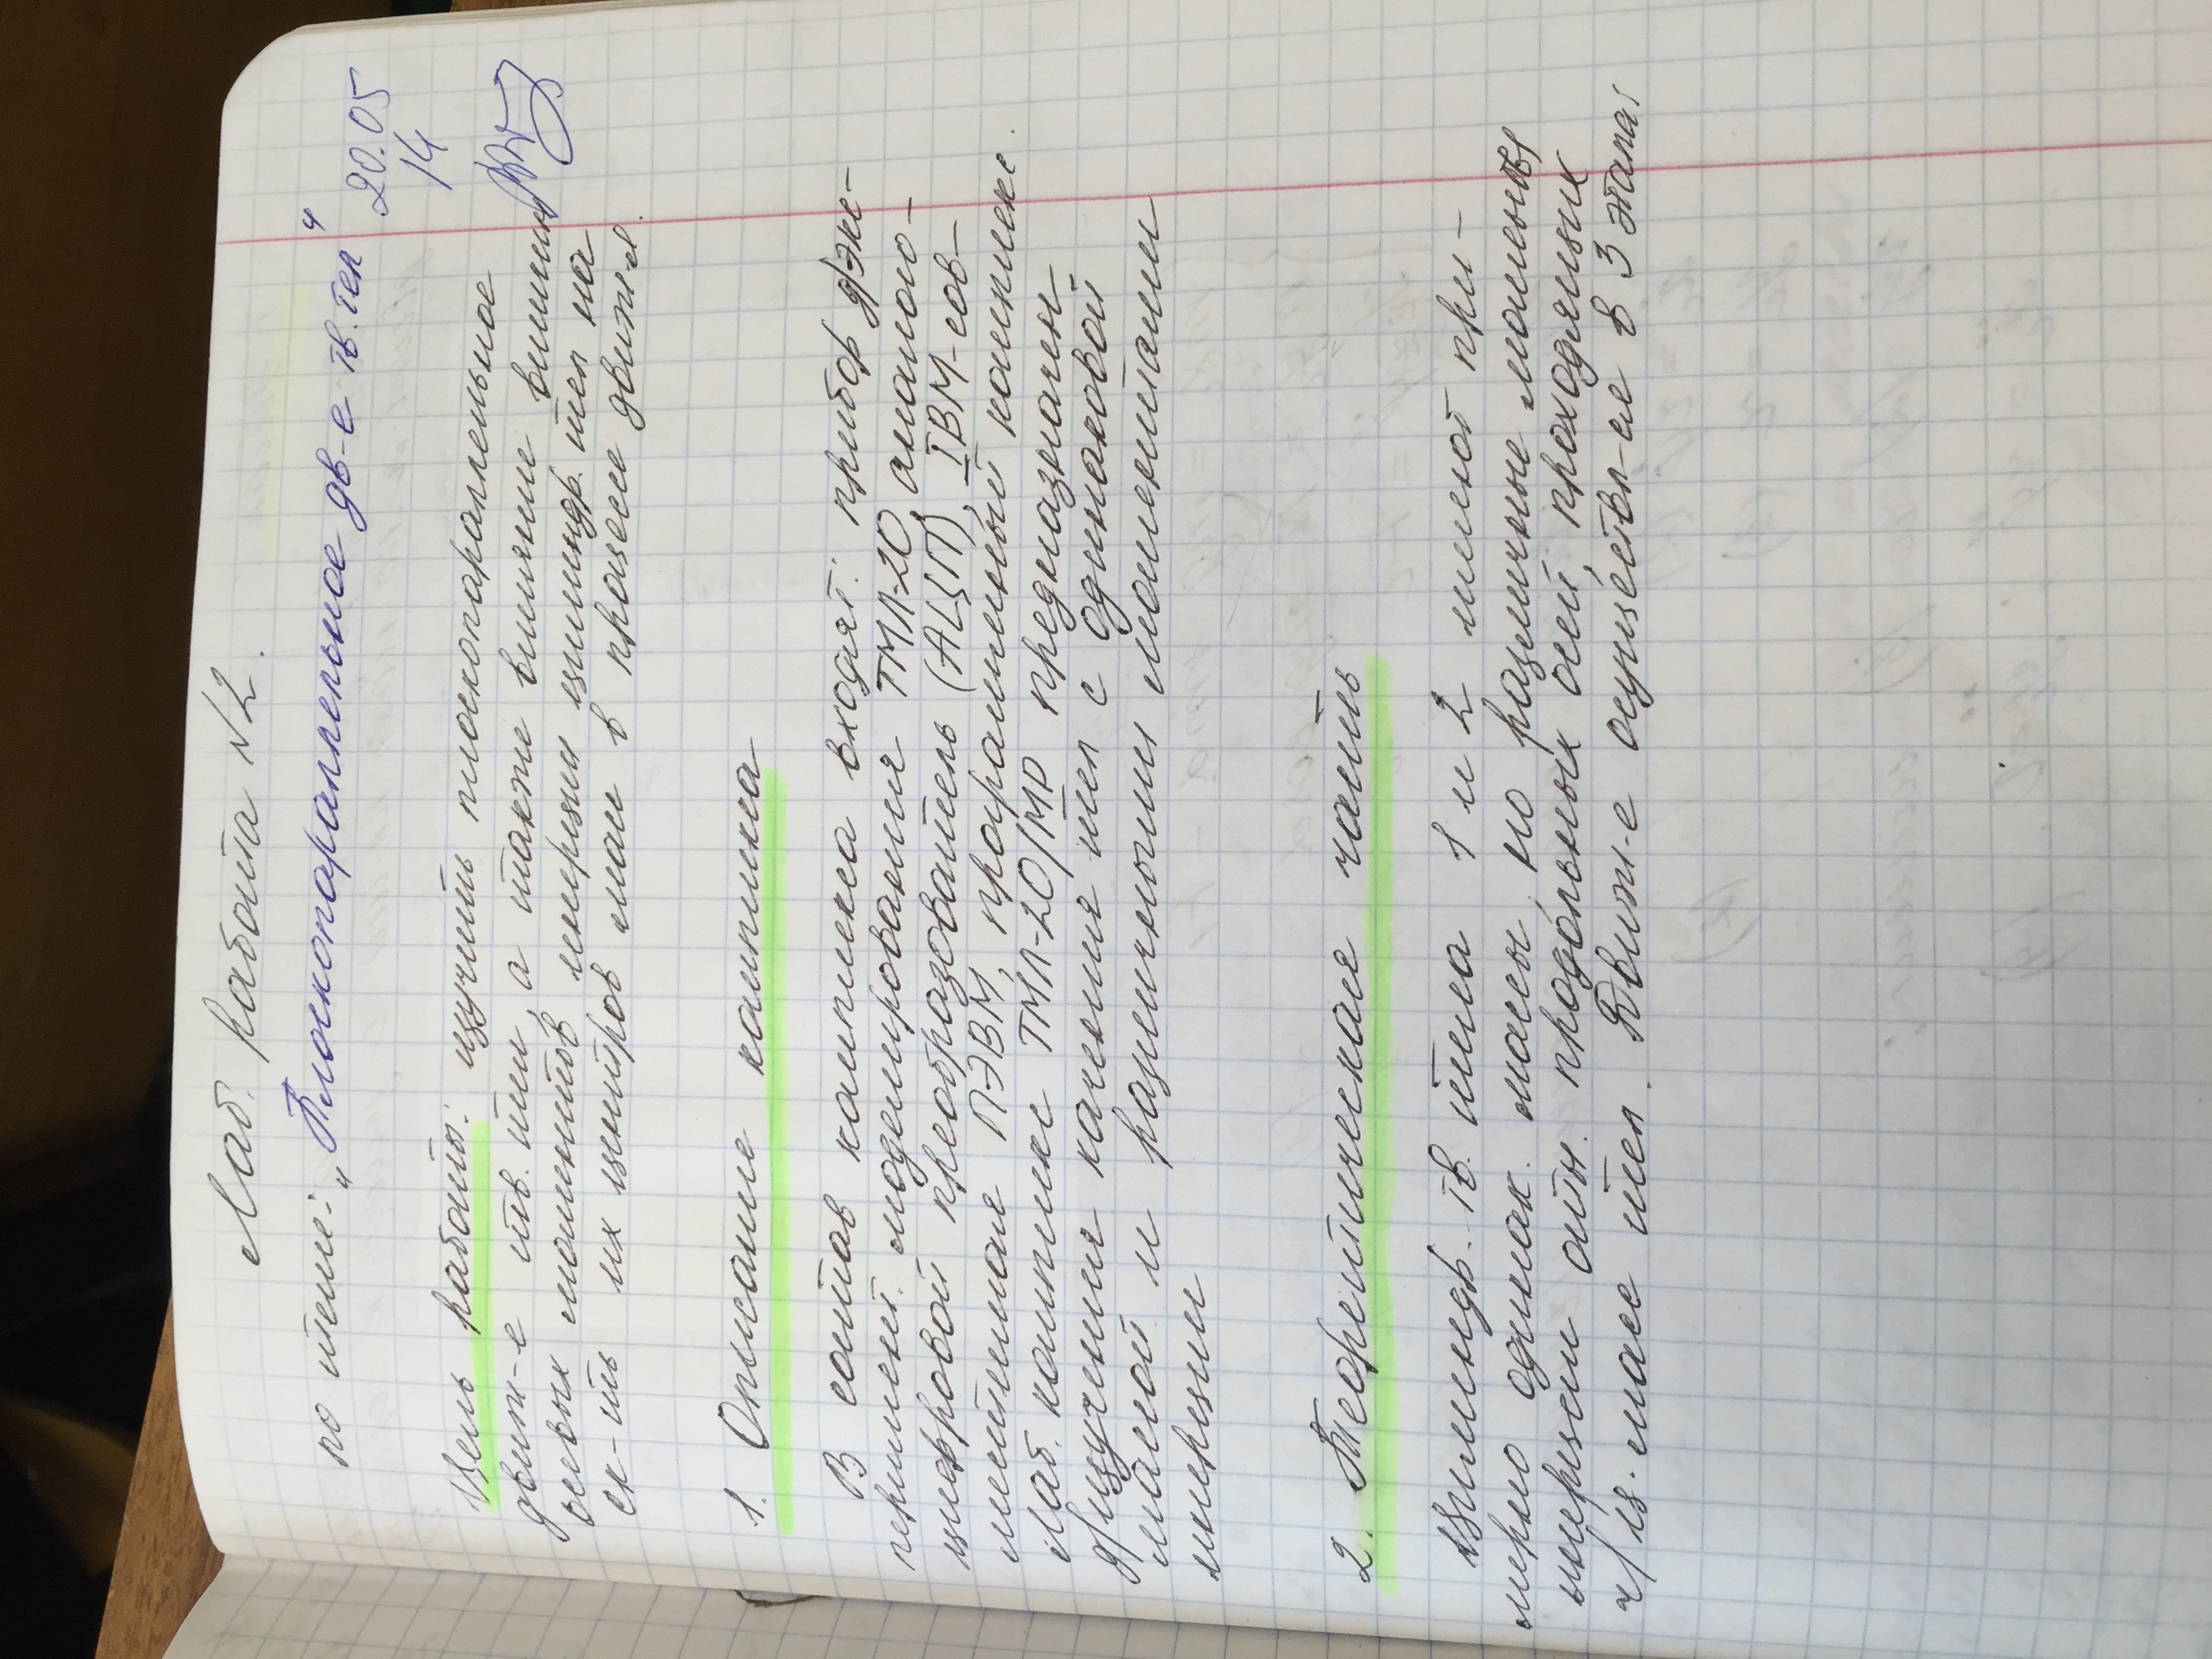 Лаб. работа №2.
по теме: „Плоскопараллельное дв-е тв. тел"
20.05
14
Цель работы: изучить плоскопараллельное
движ-е тв. тел, а также влияние влияния
осевых моментов инерции цилиндр. тел на
ск-ть их центров масс в процессе движ-я.
1. Описание комплекса
В состав комплекса входят: прибор д/экс-
перимент. моделирования ТМЛ-20 аналого-
цифровой преобразователь (АЦП), IBM-сов-
местимая ПЭВМ, программный комплекс.
Лаб. комплекс ТМЛ-20/МР предназначен
д/изучения качения тел с одинаковой
массой и различными моментами
инерции
2. Теоретическая часть
Цилиндр. тв. тела 1 и 2 имеют при-
мерно одинак. массы, но различные моменты
инерции отн. продольных осей, проходящих
ч/з ц. масс тел. Движ-е осуществл-ие в 3 этапа: